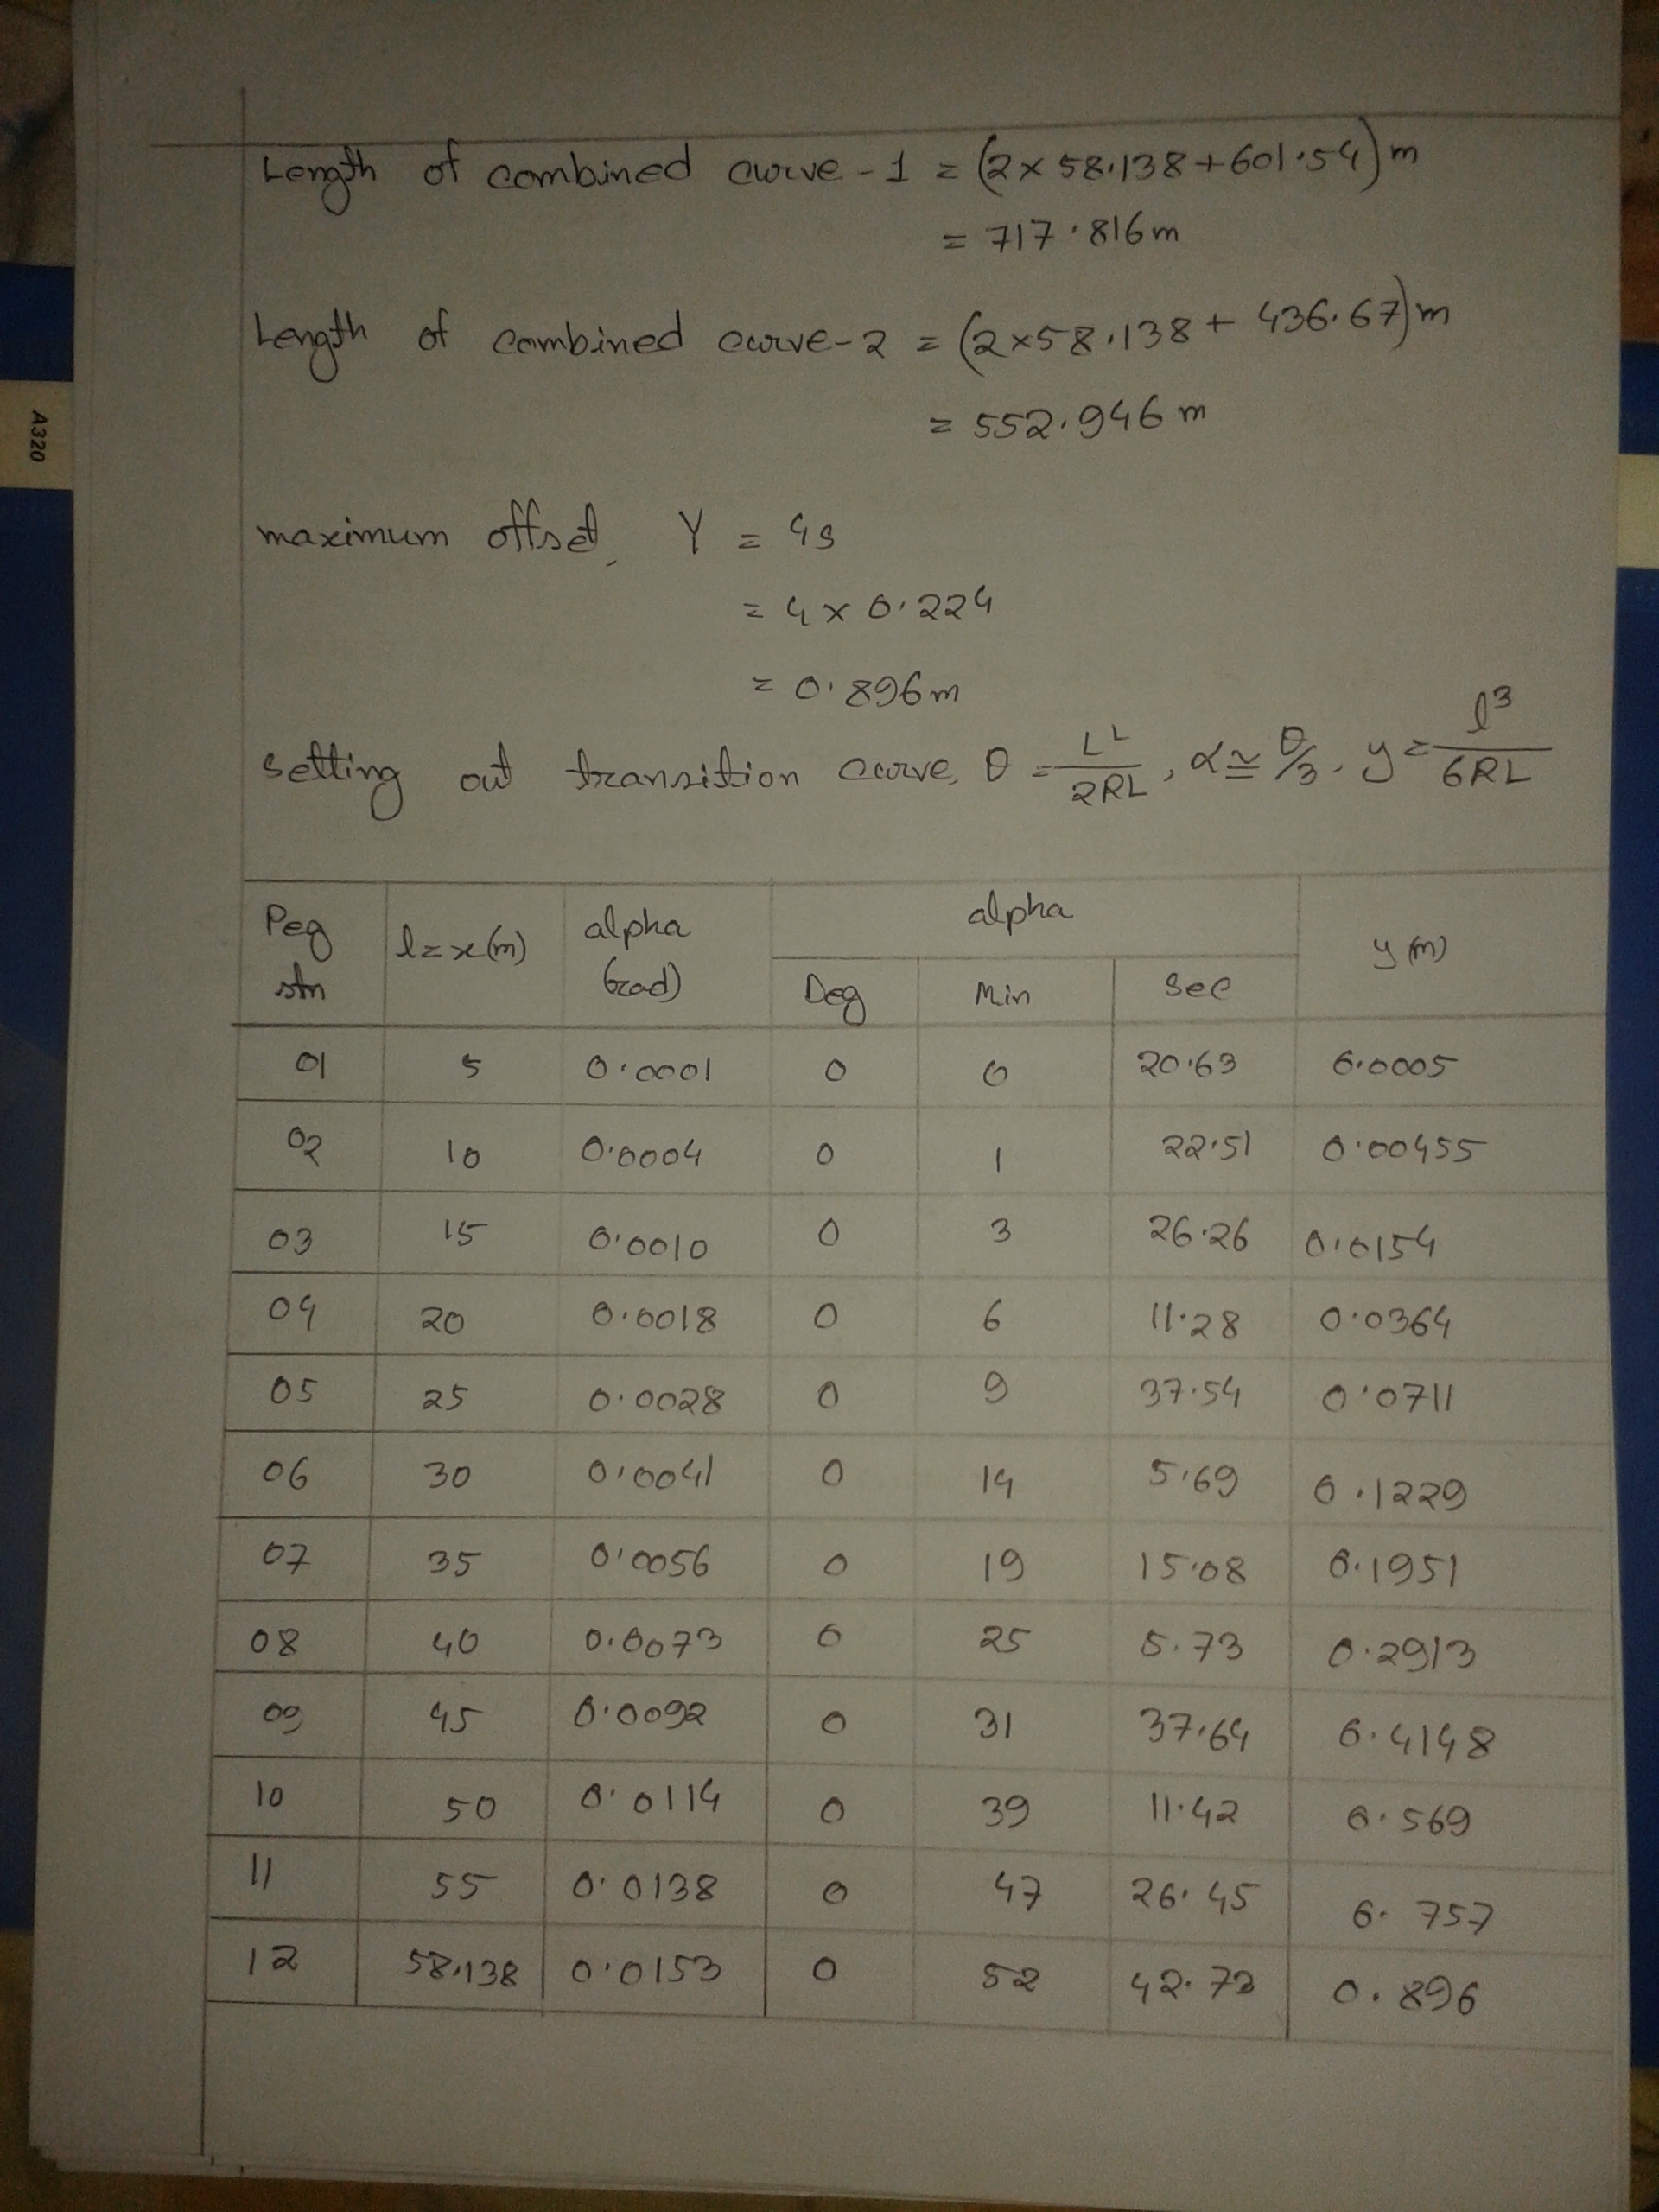 Length of combined curve-1 = (2×58.138+601.54)m
= 717.816m
Length of combined curve-2 = (2×58.138+436.67)m
= 552.946m
maximum offset, Y = 4s
= 4×0.224
= 0.896m
setting out transition curve, θ = L^L/2RL, α ≅ θ/3, y = l³/6RL
Peg stn | l=x(m) | alpha (rad) | alpha | y(m)
Deg | Min | Sec
01 | 5 | 0.0001 | 0 | 0 | 20.63 | 0.0005
02 | 10 | 0.0004 | 0 | 1 | 22.51 | 0.00455
03 | 15 | 0.0010 | 0 | 3 | 26.26 | 0.0154
04 | 20 | 0.0018 | 0 | 6 | 11.28 | 0.0364
05 | 25 | 0.0028 | 0 | 9 | 37.54 | 0.0711
06 | 30 | 0.0041 | 0 | 14 | 5.69 | 0.1229
07 | 35 | 0.0056 | 0 | 19 | 15.08 | 0.1951
08 | 40 | 0.0073 | 0 | 25 | 5.73 | 0.2913
09 | 45 | 0.0092 | 0 | 31 | 37.64 | 0.4148
10 | 50 | 0.0114 | 0 | 39 | 11.42 | 0.569
11 | 55 | 0.0138 | 0 | 47 | 26.45 | 0.757
12 | 58.138 | 0.0153 | 0 | 52 | 42.73 | 0.896
A320